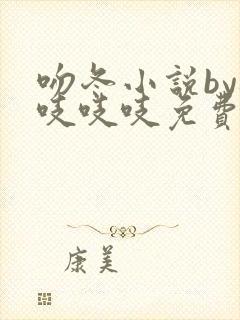 吻冬小説by
吱吱吱免費
康美